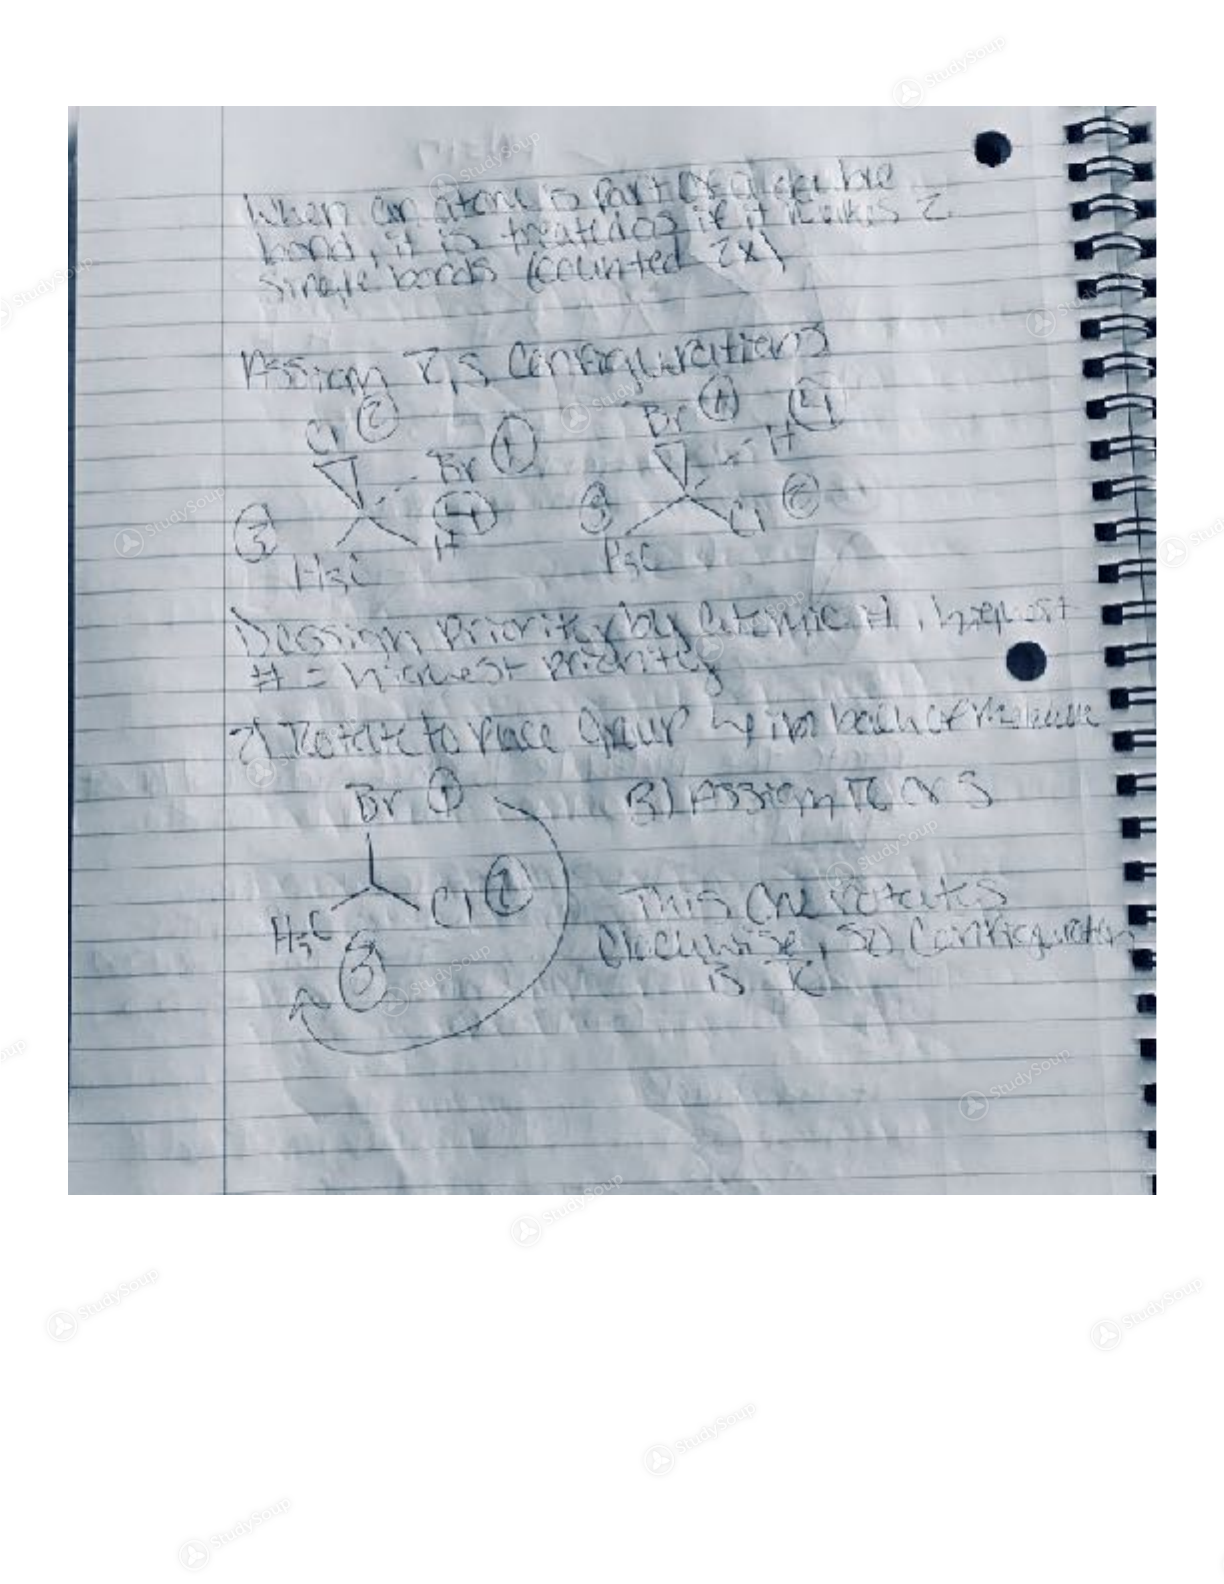 When an atom is part of a double
bond, it is treated as if it makes 2
single bonds (counted 2x)
Assign R,S Configurations
Cl 2 Br 1 H 4
Br 1
3 4 3 Cl 2
H3C H H3C
1) Assign Priority by atomic #, highest
# = highest priority
2) Rotate to place Group 4 in back of Molecule
Br 1 3) Assign R or S
H3C Cl 2 This one rotates
3 Clockwise, so Configuration
is R
StudySoup